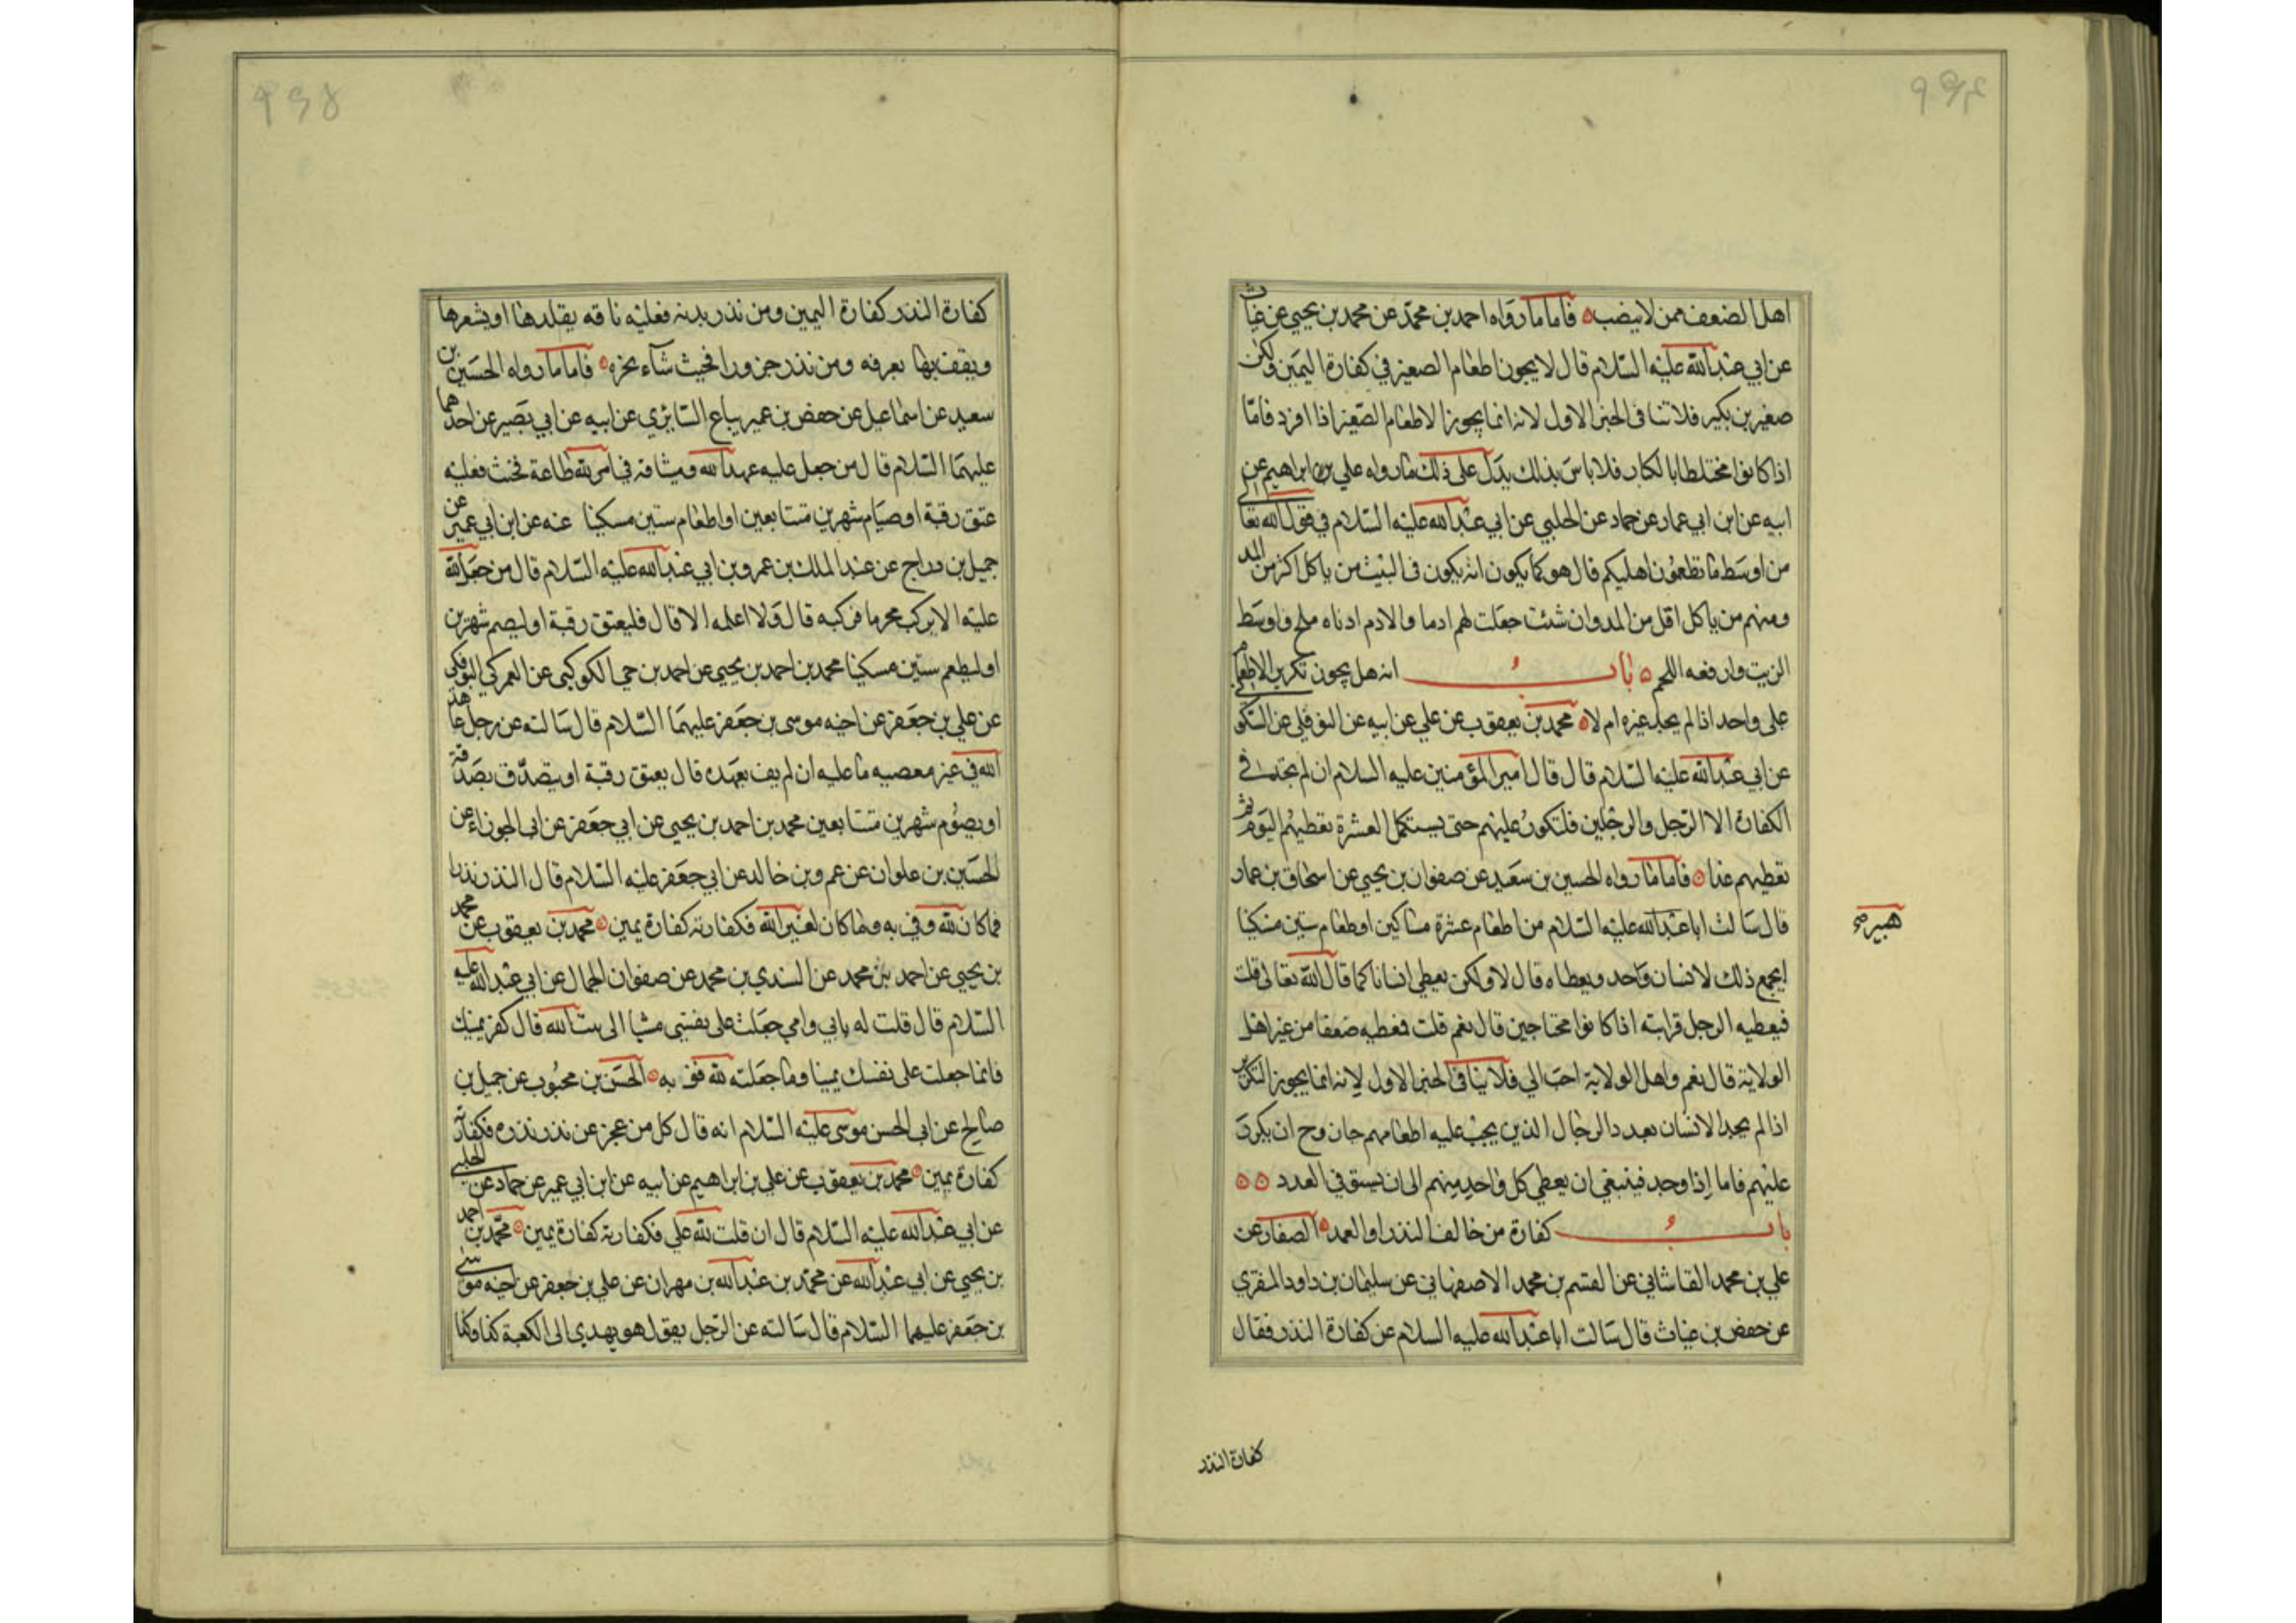 اهل الضعف ممن لا ينصب فاما ما رواه احمد بن محمد عن محمد بن يحيى عن غياث
عن ابي عبد الله عليه السلام قال لا يجوز اطعام الصغير في كفارة اليمين ولكن
صغيرين بكبير فلا تنافى الخبر الاول لانه انما يجوز الاطعام الصغير اذا افرد فامّا
اذا كانوا مختلطا بالكبار فلا باس بذلك يدل على ذلك ما رواه علي بن ابراهيم عن
ابيه عن ابن ابي عمار عن حماد عن الحلبي عن ابي عبد الله عليه السلام في قول الله تعالى
من اوسط ما تطعمون اهليكم قال هو كما يكون انه يكون في البيت من ياكل اكثر من المد
ومنهم من ياكل اقل من المد وان شئت جعلت لهم ادما والادم ادناه ملح واوسط
الزيت وارفعه اللحم باب انه هل يجوز تكرير الاطعام
على واحد اذا لم يجد غيره ام لا محمد بن يعقوب عن علي عن ابيه عن النوفلي عن السكوني
عن ابي عبد الله عليه السلام قال قال امير المؤمنين عليه السلام ان لم يجد في
الكفارة الا الرجل والرجلين فلتكرر عليهم حتى يستكمل العشرة تعطيهم اليوم ثم
تعطيهم غدا فاما ما رواه الحسين بن سعيد عن صفوان بن يحيى عن اسحاق بن عمار
قال سالت ابا عبد الله عليه السلام من اطعام عشرة مساكين او طعام ستين مسكينا
ايجمع ذلك لانسان واحد ويعطاه قال لا ولكن يعطي انسانا كما قال الله تعالى قلت
فيعطيه الرجل قرابته اذا كانوا محتاجين قال نعم قلت فعطيه ضعفا من غير اهل
الولاية قال نعم واهل الولاية احب الي فلا ينافى الخبر الاول لانه انما يجوز التكرير
اذا لم يجد الانسان بعدد الرجال الذين يجب عليه اطعامهم جاز وح ان يكرر
عليهم فاما اذا وجد فينبغي ان يعطي كل واحد منهم الى ان يستوفي العدد
باب كفارة من خالف النذر او العهد الصفار عن
علي بن محمد القاشاني عن القسم بن محمد الاصفهاني عن سليمان بن داود المنقري
عن حفص بن غياث قال سالت ابا عبد الله عليه السلام عن كفارة النذر فقال
كفارة النذر
كفارة النذر كفارة اليمين ومن نذر بدنه فعليه ناقه يقلدها او يشعرها
ويقف بها بعرفه ومن نذر جزورا فحيث شآء نحره فاما ما رواه الحسين بن
سعيد عن اسماعيل عن حفص بن عمر بياع السابري عن ابيه عن ابي بصير عن احدهما
عليهما السلام قال من جعل عليه عهد الله وميثاقه في امر لله طاعة فحنث فعليه
عتق رقبة او صيام شهرين متتابعين او اطعام ستين مسكينا عنه عن ابن ابي عمير عن
جميل بن دراج عن عبد الملك بن عمرو بن ابي عبد الله عليه السلام قال من جعل لله
عليه الا يركب محرما فركبه قال ولا اعلمه الا قال فليعتق رقبة او ليصم شهرين
او ليطعم ستين مسكينا محمد بن احمد بن يحيى عن احمد بن الكوكبي عن العمركي البوفكي
عن علي بن جعفر عن اخيه موسى بن جعفر عليهما السلام قال سالته عن رجل عاهد
الله في غير معصيه ما عليه ان لم يف بعهده قال يعتق رقبة او يتصدق بصدقة
او يصوم شهرين متتابعين محمد بن احمد بن يحيى عن ابي جعفر عن ابى الجوزاء عن
الحسين بن علوان عن عمرو بن خالد عن ابي جعفر عليه السلام قال النذر نذران
فما كان لله وفي به وما كان لغير الله فكفارته كفارة يمين محمد بن يعقوب عن محمد
بن يحيى عن احمد بن محمد عن السندي بن محمد عن صفوان الجمال عن ابي عبد الله عليه
السلام قال قلت له بابي وامي جعلت على نفسي مشيا الى بيت الله قال كفر يمينك
فانما جعلت على نفسك يمينا وما جعلته لله فف به الحسن بن محبوب عن جميل بن
صالح عن ابى الحسن موسى عليه السلام انه قال كل من عجز عن نذر نذره فكفارته
كفارة يمين محمد بن يعقوب عن علي بن ابراهيم عن ابيه عن ابن ابي عمير عن حماد عن الحلبي
عن ابي عبد الله عليه السلام قال ان قلت لله علي فكفارته كفارة يمين محمد بن احمد
بن يحيى عن ابي عبد الله عن محمد بن عبد الله بن مهران عن علي بن جعفر عن اخيه موسى
بن جعفر عليهما السلام قال سالته عن الرجل يقول هو يهدي الى الكعبة كذا وكذا